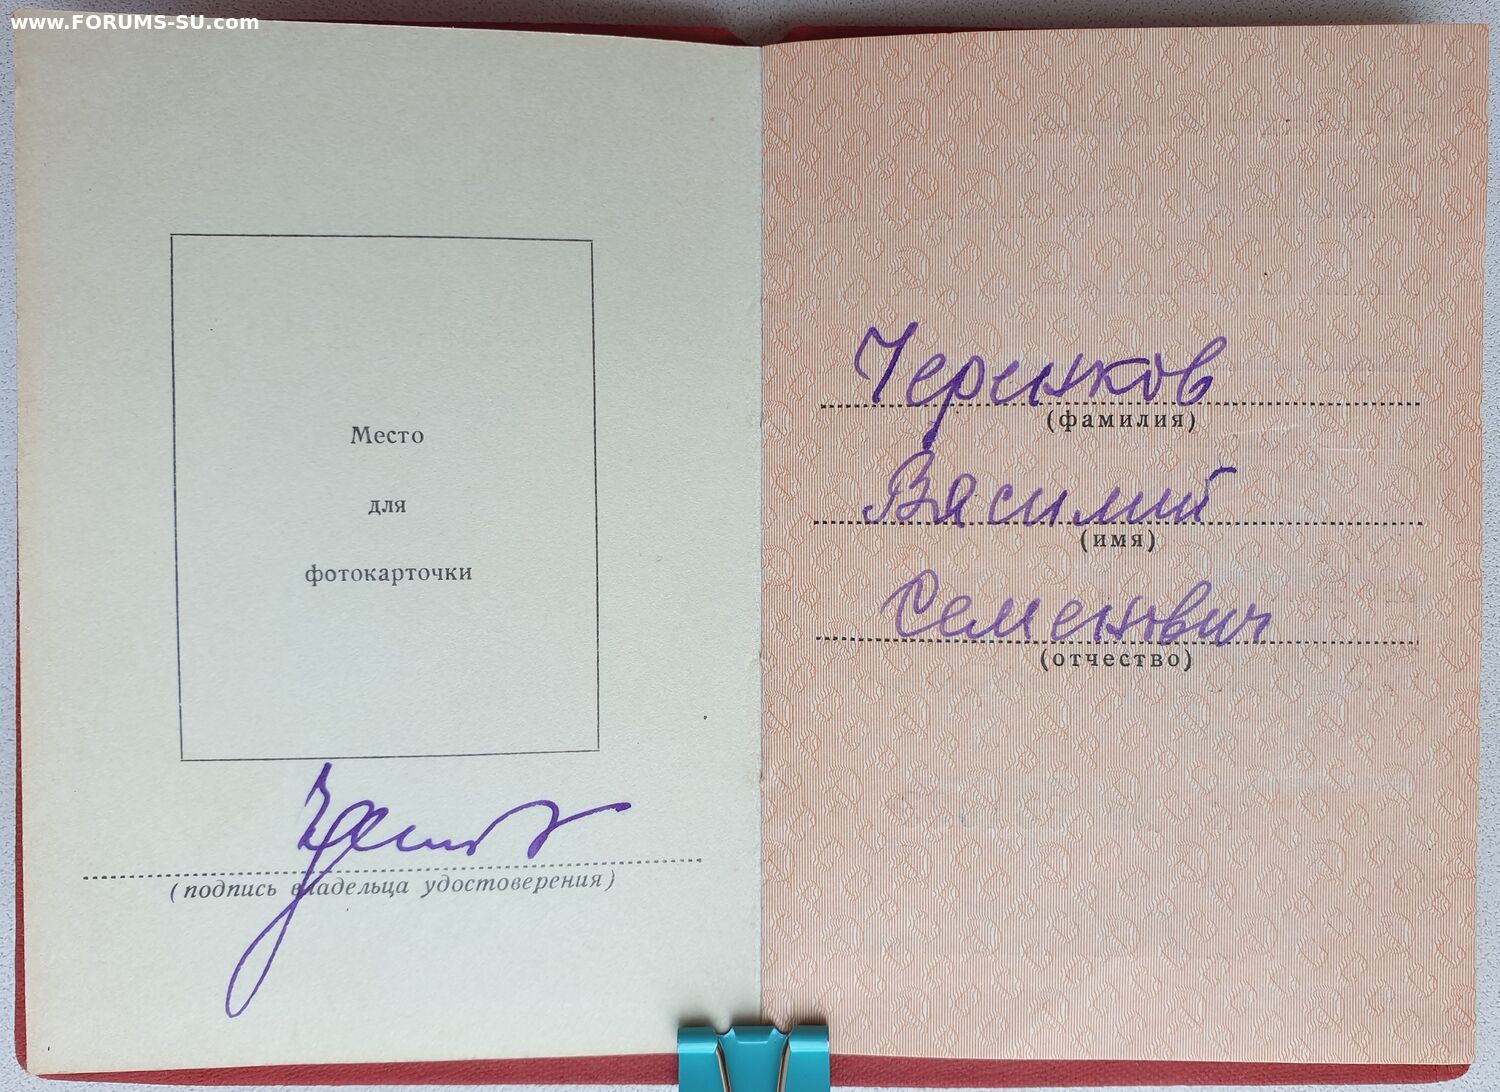 www.FORUMS-SU.com
Место
для
фотокарточки
(подпись владельца удостоверения)
Черинков
(фамилия)
Василий
(имя)
Семенович
(отчество)